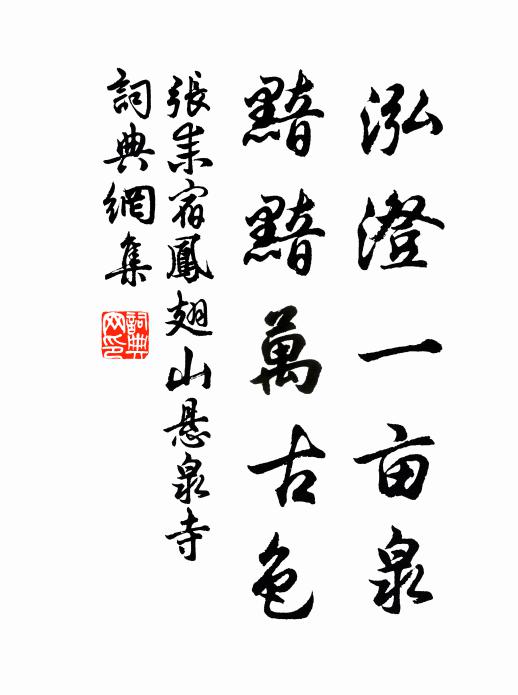 泓澄一亩泉
黯黯萬古色
張耒宿鳳翅山悬泉寺
詞典網集
詞典网印